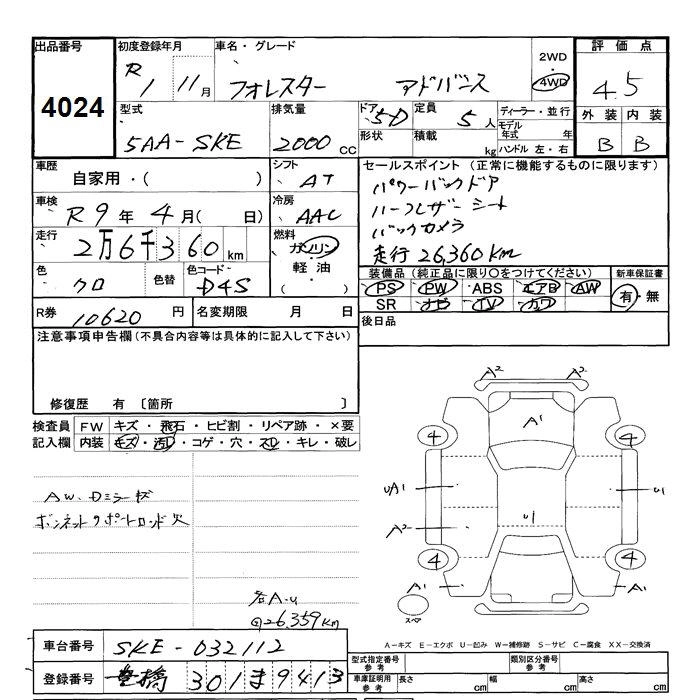 出品番号 初度登録年月 車名・グレード 2WD ・ 4WD 評価点
4024 R1 11月 フォレスター アドバンス 4.5
型式 排気量 ドア 定員 ディーラー・並行 外装 内装
5AA-SKE 2000cc 5D 5人 モデル年式 年 B B
形状 積載 kg ハンドル 左・右
車歴 シフト セールスポイント (正常に機能するものに限ります)
自家用・( ) AT パワーバックドア
車検 冷房 ハーフレザーシート
R9年4月( 日) AAC バックカメラ
走行 燃料 走行26,360km
2万6千360km ガソリン 軽油 ( )
色 色替 色コード 装備品(純正品に限り○をつけてください) 新車保証書
クロ D4S PS PW ABS エアB AW 有・無
SR ナビ TV カワ
R券 10620円 名変期限 月 日 後日品
注意事項申告欄(不具合内容等は具体的に記入して下さい)
修復歴 有 〔箇所 〕
検査員 FW キズ・飛石・ヒビ割・リペア跡・×要
記入欄 内装 キズ・汚レ・コゲ・穴・スレ・キレ・破レ
A2 A2
A1
4 4
UA1 U1
A2 U1
4 4
A1 A1
スペア
AW、Dミラーキズ
ボンネットサポートロッド欠
各A・U
@26,359km
A-キズ E-エクボ U-凹み W-補修跡 S-サビ C-腐食 XX-交換済
車台番号 SKE-032112
登録番号 豊橋 301ま9413
型式指定番号 参考 類別区分番号 参考
車庫証明用 参考 長さ cm 幅 cm 高さ cm